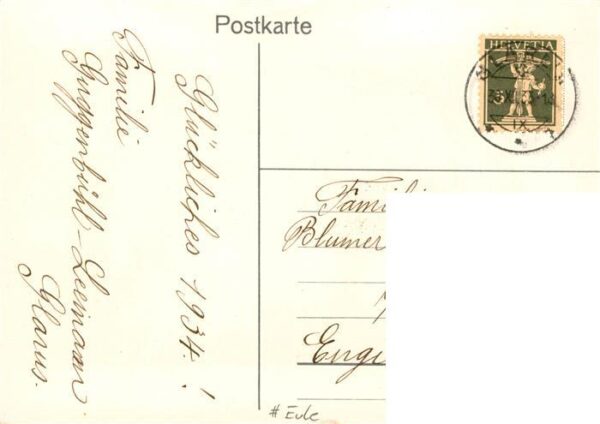 Postkarte
HELVETIA
Glückliches 1934.!
Familie
Guggenbühl-Leemann
Glarus.
Familie
Blumer
Engi
# Eule